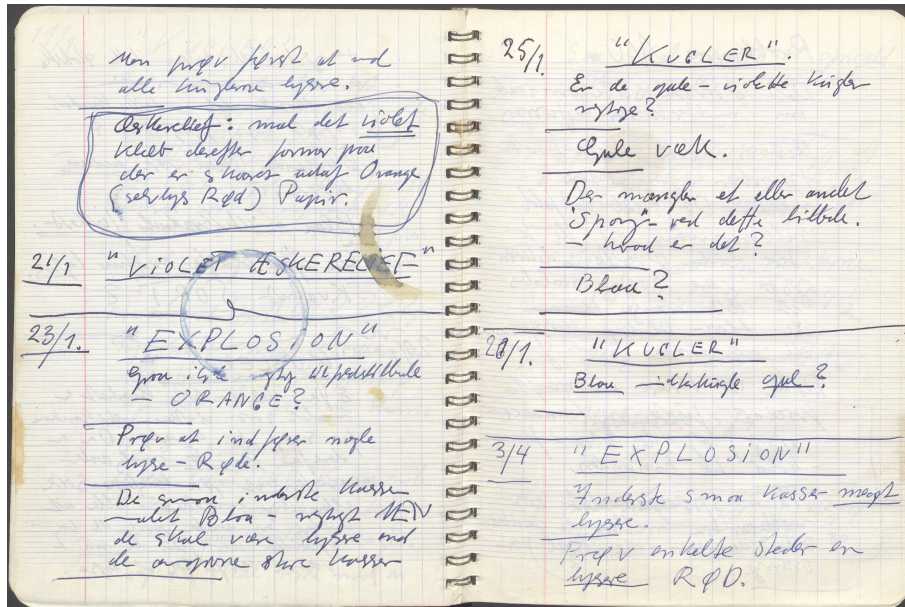 Men prøv først at
alle kuglerne lysere.
Æskerelief: mal det violet
klæb derefter former paa
der er skaaret ud af Orange
(selvlys Rød) Papir.
21/1 "VIOLET ÆSKERELIEF"
23/1. "EXPLOSION"
ikke rigtig
– ORANGE?
Prøv at indføre nogle
lyse – Røde.
De smaa inderste Kasser
malet Blaa – rigtigt MEN
de skal være lysere end
de store Kasser
25/1. "KUGLER".
Er de gule – violette Kugler
rigtige?
Gule væk.
Der mangler et eller andet
"Spong" ved dette billede.
– hvad er det?
Blaa?
"KUGLER"
Blaa – gule?
3/4 "EXPLOSION"
Inderste smaa Kasser meget
lysere.
Prøv enkelte steder en
lysere RØD.